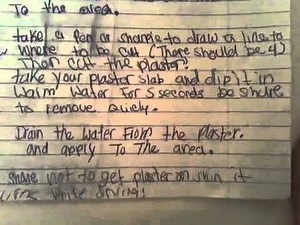 To the area.
take a Pen or sharpie to draw a line to
where to be cut (There should be 4)
Then cut the plaster.
take your plaster slab and dip it in
warm water For 5 seconds be share
to remove quickly.
Drain the water From the Plaster.
and apply To The area.
share not to get plaster on skin it
while drying